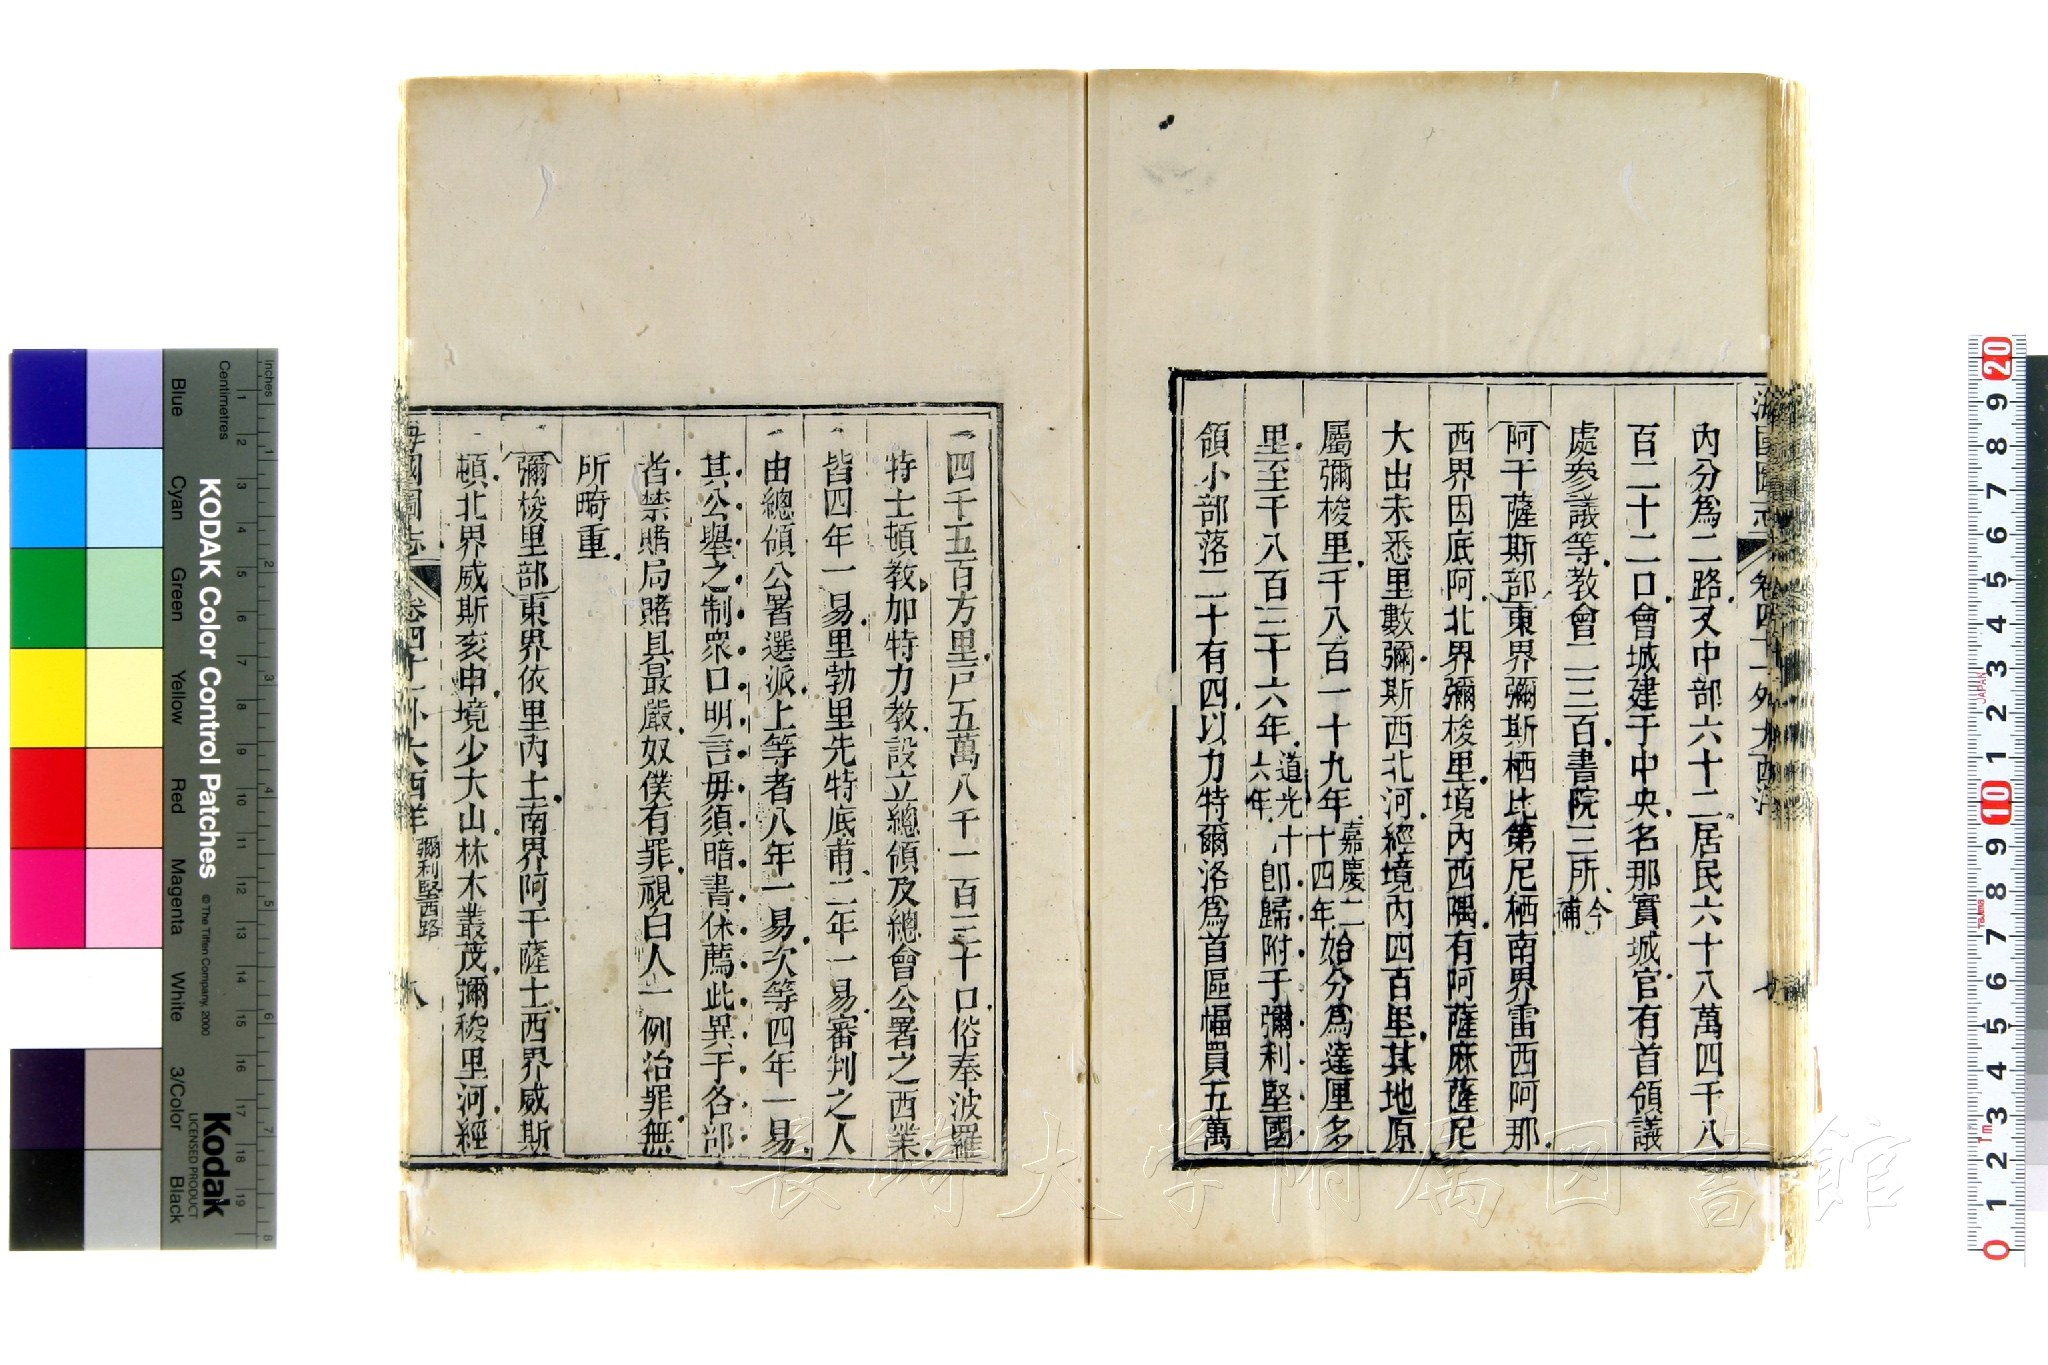 內分為二路又中部六十二居民六十八萬四千八
百二十二口會城建于中央名那實城官有首領議
處參議等教會二三百書院三所今補
阿干薩斯部東界彌斯栖比第尼栖南界雷西阿那
西界因底阿北界彌梭里境內西隅有阿薩麻薩尼
大出未悉里數彌斯西北河經境內四百里其地原
屬彌梭里千八百一十九年嘉慶二十四年始分為達厘多
里至千八百三十六年道光十六年卽歸附于彌利堅國
領小部落二十有四以力特爾洛為首區幅員五萬
四千五百方里戶五萬八千一百三十口俗奉波羅
特士頓教加特力教設立總領及總會公署之西業
皆四年一易里勃里先特底甫二年一易審判之人
由總領公署選派上等者八年一易次等四年一易
其公舉之制眾口明言毋須暗書休薦此異于各部
者禁賭局賭具最嚴奴僕有罪視白人一例治罪無
所畸重
彌梭里部東界依里內士南界阿干薩士西界威斯
頓北界威斯亥申境少大山林木叢茂彌稜里河經
海國圖志
彌利堅西路
長崎大学附属図書館
KODAK Color Control Patches
© The Tiffen Company, 2000
Kodak
LICENSED PRODUCT
Inches
Centimetres
Blue
Cyan
Green
Yellow
Red
Magenta
White
3/Color
Black
JAPAN